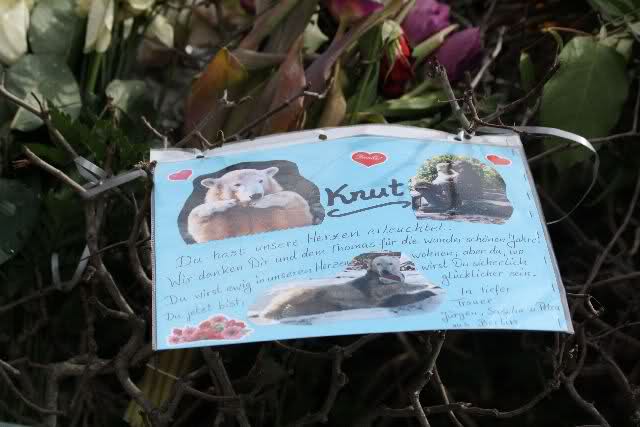 Danke
Knut
Du hast unsere Herzen erleuchtet.
Wir danken Dir und dem Thomas für die wunderschönen Jahre!
Du wirst ewig in unseren Herzen wohnen, aber da, wo
Du jetzt bist, wirst Du sicherlich
glücklicher sein.
In tiefer
Trauer
Jürgen, u Petra
aus Berlin